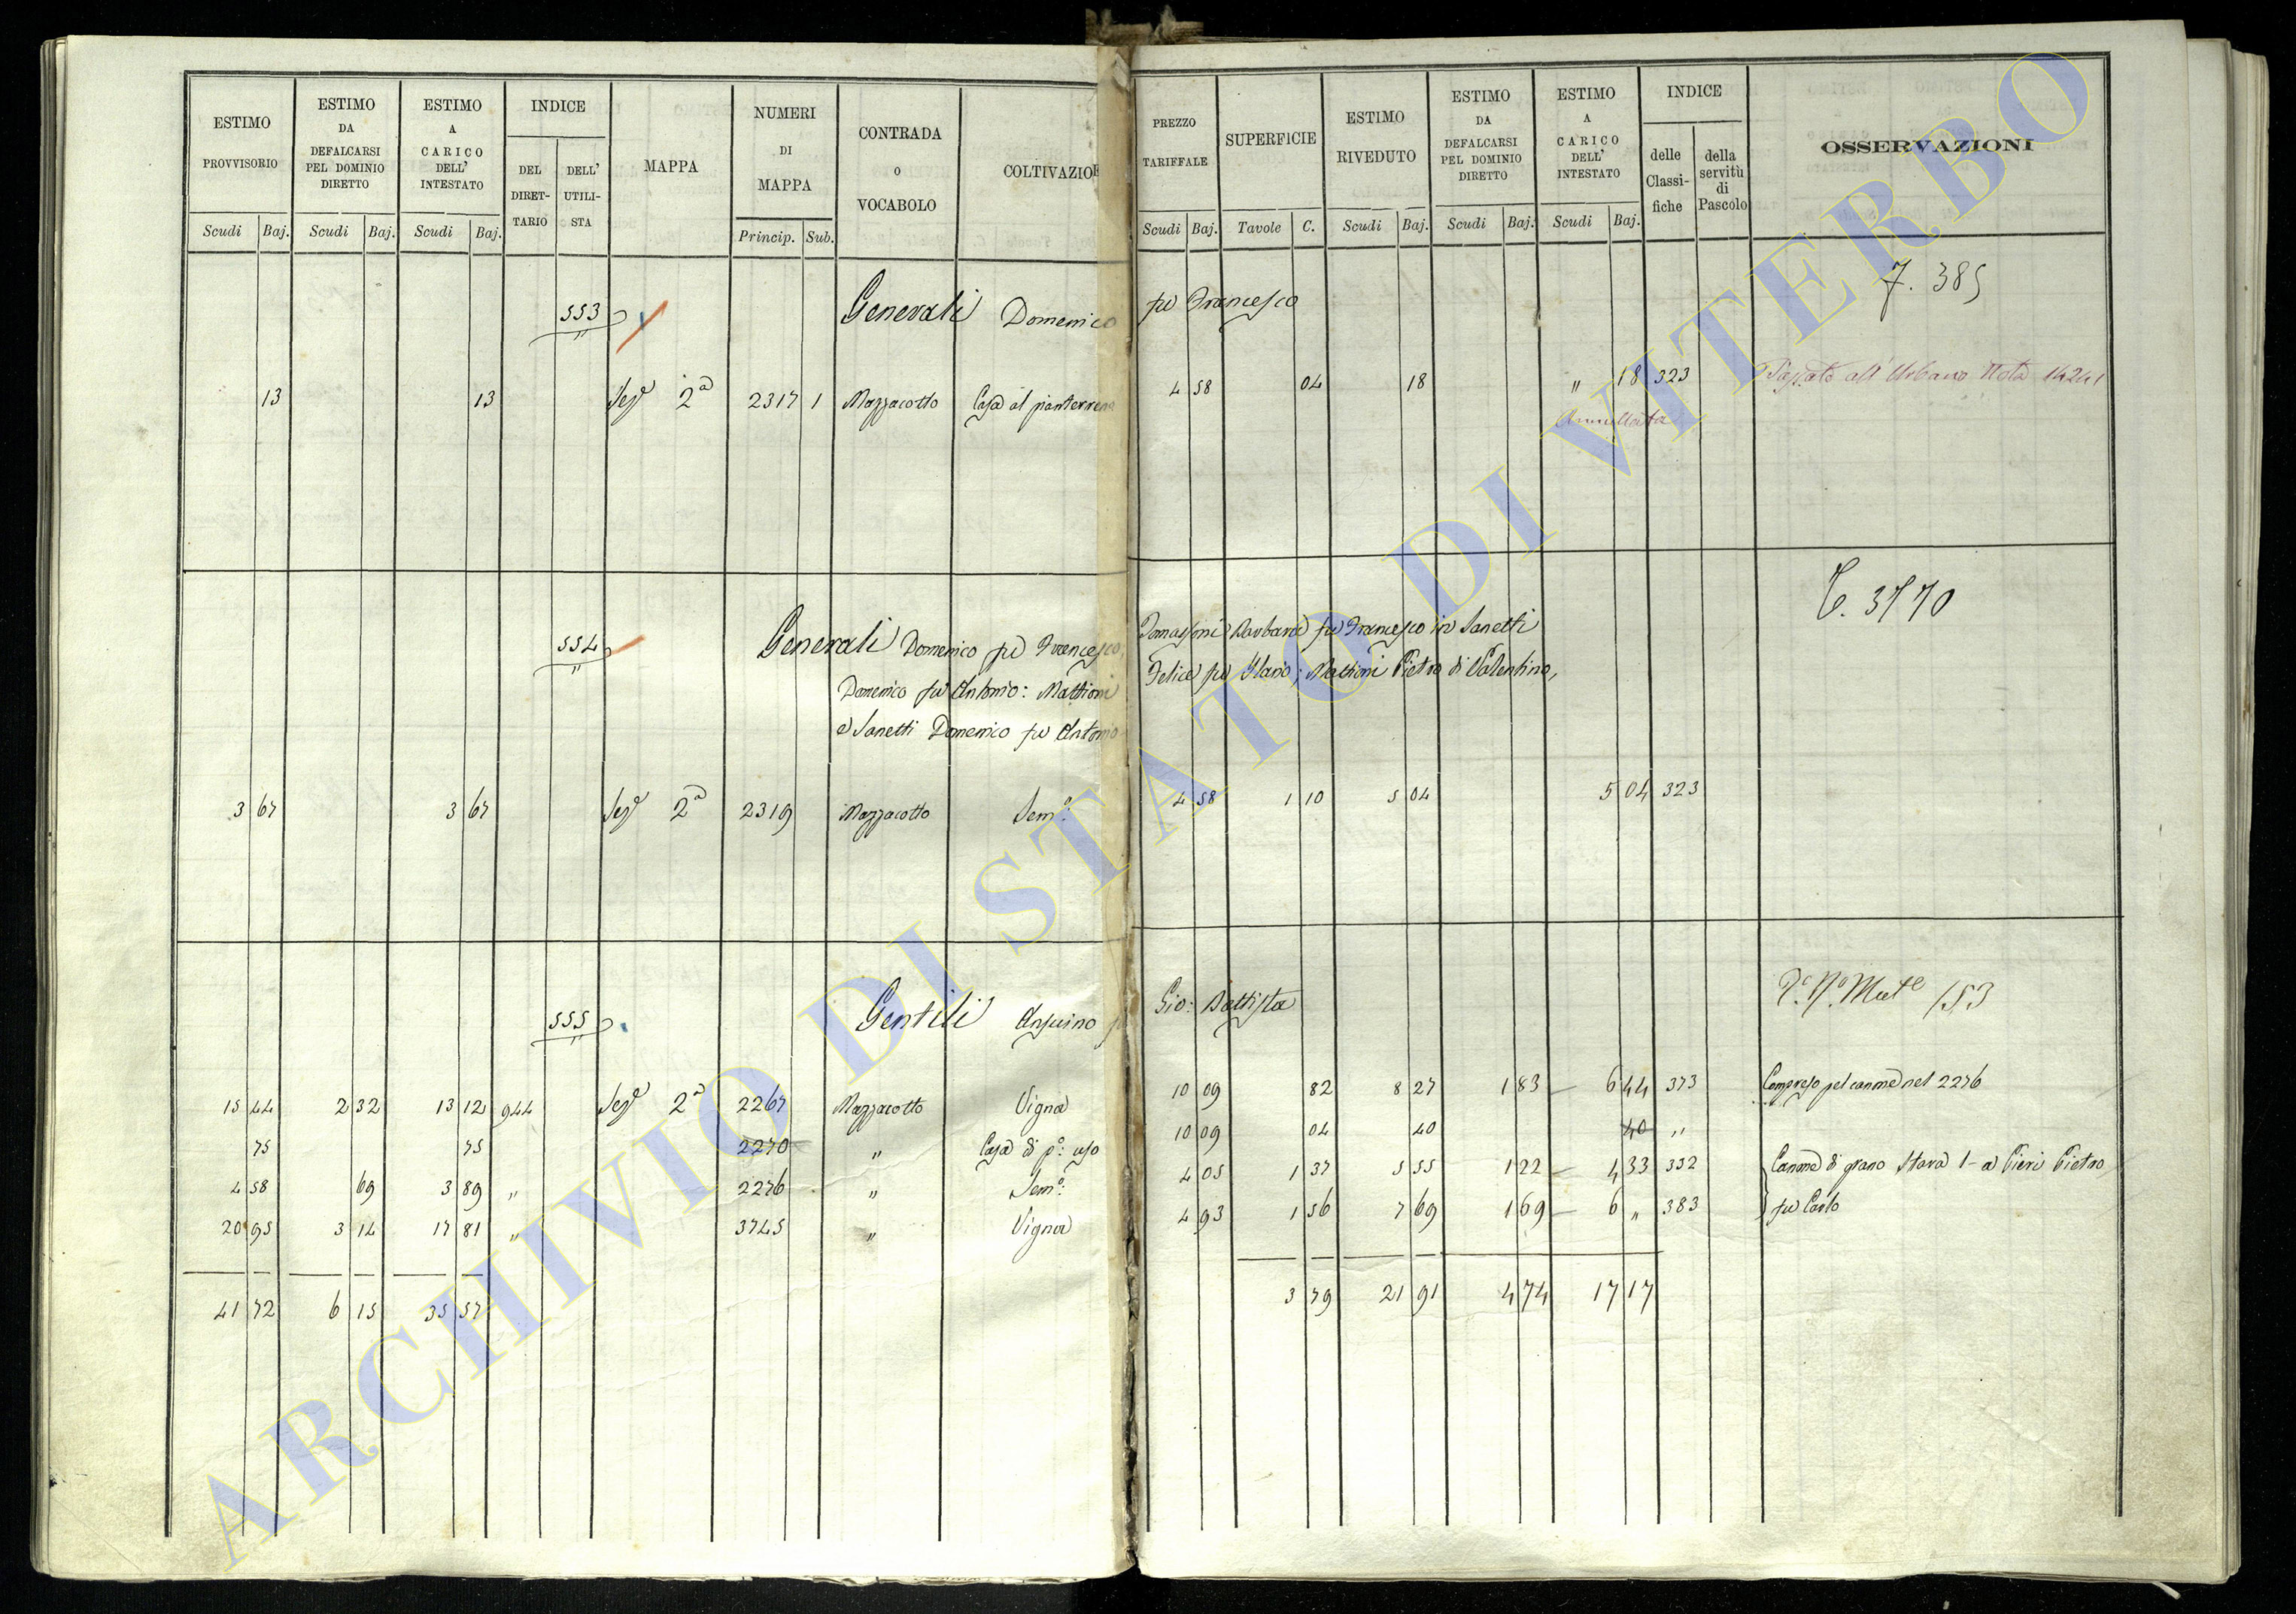 ESTIMO PROVVISORIO
ESTIMO DA DEFALCARSI PEL DOMINIO DIRETTO
ESTIMO A CARICO DELL' INTESTATO
INDICE
DEL DIRET-TARIO
DELL' UTILI-STA
MAPPA
NUMERI DI MAPPA
CONTRADA O VOCABOLO
COLTIVAZIO
PREZZO TARIFFALE
SUPERFICIE
ESTIMO RIVEDUTO
ESTIMO DA DEFALCARSI PEL DOMINIO DIRETTO
ESTIMO A CARICO DELL' INTESTATO
INDICE
delle Classi-fiche
della servitù di Pascolo
OSSERVAZIONI
Scudi Baj. Scudi Baj. Scudi Baj. Princip. Sub. Scudi Baj. Tavole C. Scudi Baj. Scudi Baj. Scudi Baj.
7. 385
553 Generali Domenico fu Francesco
13 13 Sez.e 2a 2317 1 Mazzacotto Casa al pianterreno 4 58 04 18 " 18 323 Passato all'Urbano Nota 14241
Annullata
T. 3770
554 Generali Domenico fu Francesco, Tomassoni Barbara fu Francesco in Sanetti
Domenico fu Antonio: Mattioni Felice fu Ilario; Mattioni Pietro di Valentino,
e Sanetti Domenico fu Antonio
3 67 3 67 Sez.e 2a 2319 Mazzacotto Sem.o 4 58 1 10 5 04 5 04 323
153
555 Gentili Ansuino Gio: Battista
15 44 2 32 13 12 944 Sez.e 2a 2267 Mazzacotto Vigna 10 09 82 8 27 1 83 6 44 373 Compreso pel canone nel 2276
75 75 2270 " Casa di p.o uso 10 09 04 40 40 "
4 58 69 3 89 " 2276 " Sem.o 4 05 1 37 5 55 1 22 4 33 332 Canone di grano Stara 1 - a Pieri Pietro
20 95 3 14 17 81 " 3745 " Vigna 4 93 1 56 7 69 1 69 6 " 383 fu Carlo
41 72 6 15 35 57 3 79 21 91 4 74 17 17
ARCHIVIO DI STATO DI VITERBO